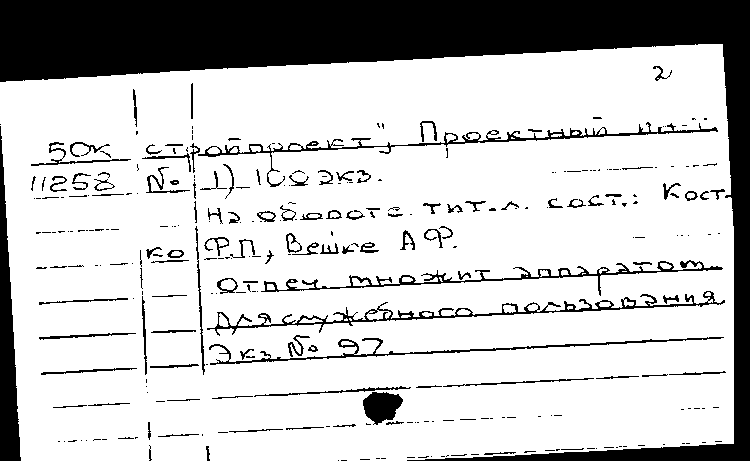 2
50к стройпроект", Проектный ин-т.
11258 № 1) 100 экз.
На обороте тит. л. сост.: Кост-
ко Ф.П, Вешке А Ф.
Отпеч. множит аппаратом
Для служебного пользования
Экз. № 97.